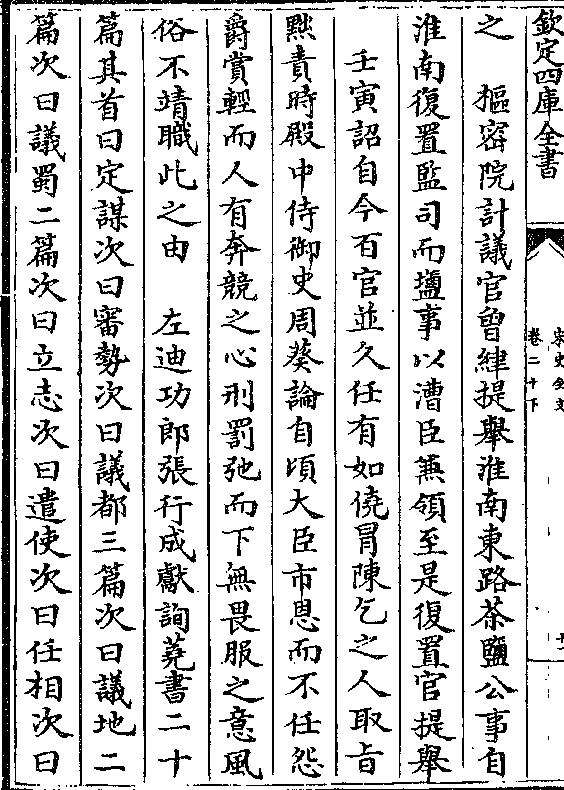 欽定四庫全書
宋史全文
卷二十下
之　樞密院計議官曾緯提舉淮南東路茶鹽公事自
淮南復置監司而鹽事以漕臣兼領至是復置官提舉
壬寅詔自今百官並久任有如僥冒陳乞之人取旨
黜責時殿中侍御史周葵論自頃大臣市恩而不任怨
爵賞輕而人有奔競之心刑罰弛而下無畏服之意風
俗不靖職此之由　左迪功郎張行成獻詢蕘書二十
篇其首曰定謀次曰審勢次曰議都三篇次曰議地二
篇次曰議蜀二篇次曰立志次曰遣使次曰任相次曰